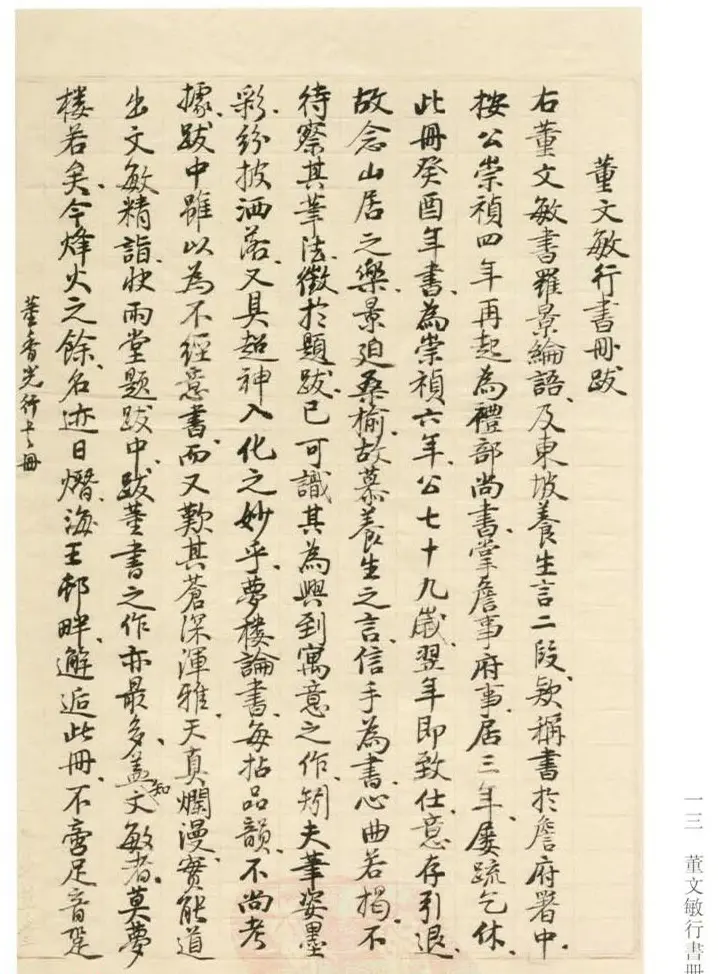 董文敏行書冊跋
右董文敏書羅景綸語、及東坡養生言二段、款稱書於詹府署中、
按公崇禎四年再起為禮部尚書、掌詹事府事、居三年、屢疏乞休、
此冊癸酉年書、為崇禎六年、公七十九歲、翌年即致仕、意存引退、
故念山居之樂、景迫桑榆、故慕養生之言、信手為書、心曲若揭、不
待察其筆法、徵於題跋、已可識其為興到寓意之作、矧夫筆姿墨
彩、紛披洒落、又具超神入化之妙乎、夢樓論書、每拈品韻、不尚考
據、跋中雖以為不經意書、而又歎其蒼深渾雅、天真爛漫、實能道
出文敏精詣、快雨堂題跋中、跋董書之作亦最多、蓋知文敏者、莫夢
樓若矣、今烽火之餘、名迹日熸、海王邨畔、邂逅此冊、不啻足音跫
董香光行書冊
一三　董文敏行書冊